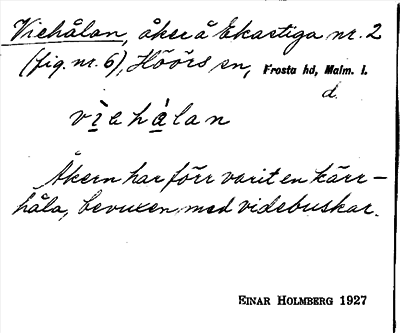 Viehålan, åker å Ekastiga nr. 2
(fig. nr. 6), Höörs sn, Frosta hd, Malm. l.
d.
vìehálan
Åkern har förr varit en kärr-
håla, bevuxen med videbuskar.
EINAR HOLMBERG 1927